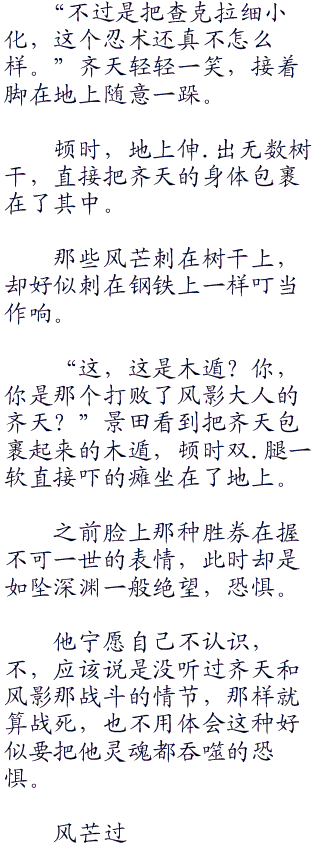 “不过是把查克拉细小
化，这个忍术还真不怎么
样。”齐天轻轻一笑，接着
脚在地上随意一跺。
顿时，地上伸.出无数树
干，直接把齐天的身体包裹
在了其中。
那些风芒刺在树干上，
却好似刺在钢铁上一样叮当
作响。
“这，这是木遁？你，
你是那个打败了风影大人的
齐天？”景田看到把齐天包
裹起来的木遁，顿时双.腿一
软直接吓的瘫坐在了地上。
之前脸上那种胜券在握
不可一世的表情，此时却是
如坠深渊一般绝望，恐惧。
他宁愿自己不认识，
不，应该说是没听过齐天和
风影那战斗的情节，那样就
算战死，也不用体会这种好
似要把他灵魂都吞噬的恐
惧。
风芒过